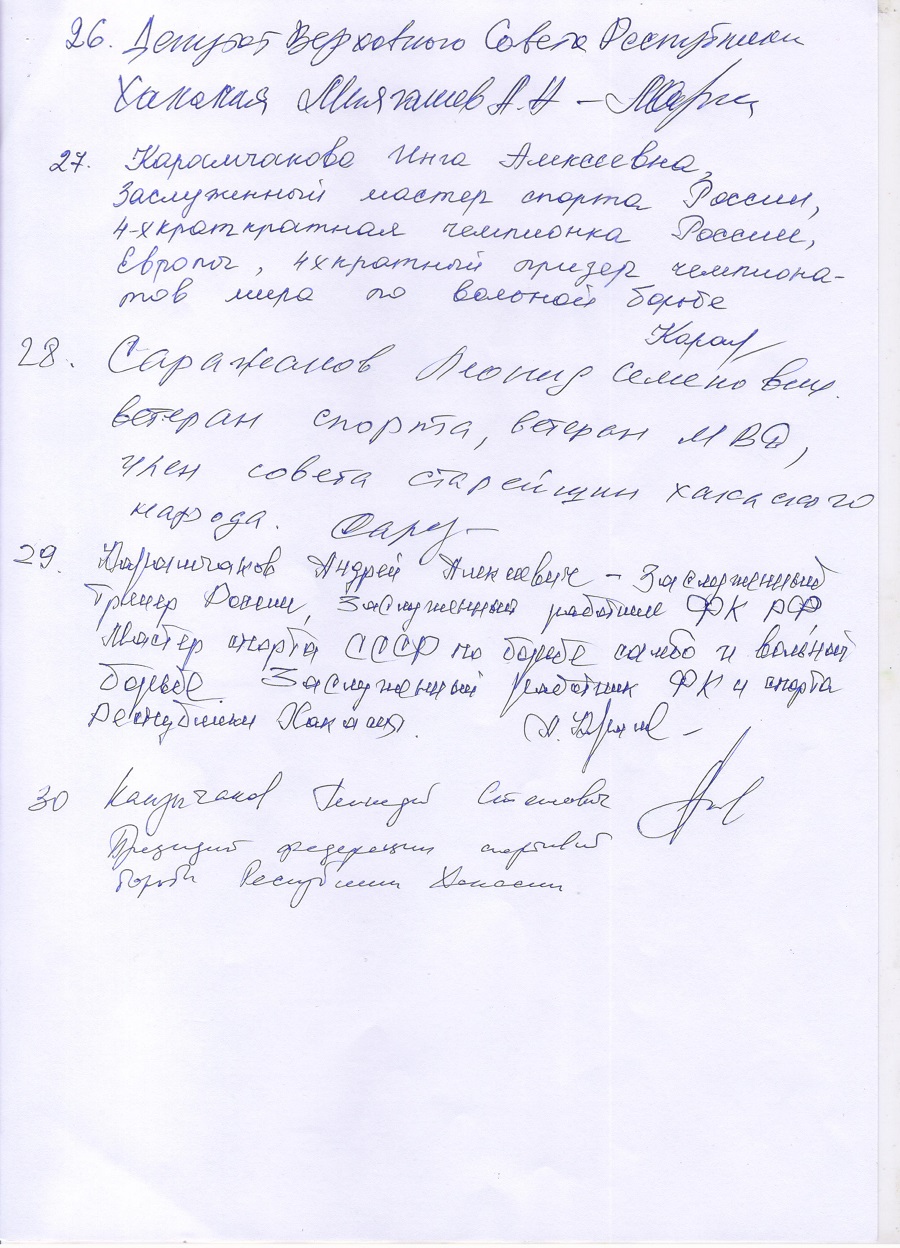 26. Депутат Верховного Совета Республики
Хакасия Миягашев А.Н –
27. Карамчакова Инга Алексеевна,
Заслуженный мастер спорта России,
4-хкраткратная чемпионка России,
Европы, 4хкратный призер чемпиона-
тов мира по вольной борьбе
Карам
28. Саражаков Леонид Семенович.
ветеран спорта, ветеран МВД,
член совета старейшин хакаского
народа.
29. Карамчаков Андрей Алексеевич – Заслуженный
Тренер России, Заслуженный работник ФК РФ
Мастер спорта СССР по борьбе самбо и вольной
борьбе. Заслуженный работник ФК и спорта
Республики Хакасия.
30 Канзычаков Геннадий Степанович
Президент федерации спортивной
борьбы Республики Хакасии